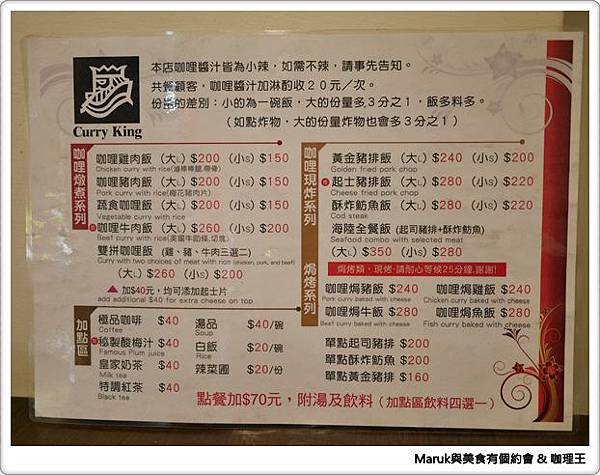 Curry King
本店咖哩醬汁皆為小辣，如需不辣，請事先告知。
共餐顧客，咖哩醬汁加淋酌收２０元／次。
份量的差別：小的為一碗飯，大的份量多３分之１，飯多料多。
（如點炸物，大的份量炸物也會多３分之１）
咖哩燉煮系列
咖哩雞肉飯 （大L）$200 （小S）$150
Chicken curry with rice(滷棒棒腿,帶骨)
咖哩豬肉飯 （大L）$200 （小S）$150
Pork curry with rice(梅花豬肉片)
蔬食咖哩飯 （大L）$200 （小S）$150
Vegetable curry with rice
咖哩牛肉飯 （大L）$260 （小S）$200
Beef curry with rice(美國牛肋條,切塊)
雙拼咖哩飯 （雞、豬、牛肉三選二）
Curry with two choices of meat with rice (chicken, pork, and beef)
（大L）$260 （小S）$200
▲ 加$40元，均可添加起士片
add additional $40 for extra cheese on top
咖哩現炸系列
黃金豬排飯 （大L）$240 （小S）$200
Golden fried pork chop
起士豬排飯 （大L）$280 （小S）$220
Cheese fried pork chop
酥炸魴魚飯 （大L）$280 （小S）$220
Cod steak
海陸全餐飯（起司豬排+酥炸魴魚）
Seafood combo with selected meat
（大L）$350 （小S）$280
焗烤系列
焗烤類、現烤，請耐心等候25分鐘,謝謝!
咖哩焗豬飯 $240 咖哩焗雞飯 $240
Pork curry baked with cheese Chicken curry baked with cheese
咖哩焗牛飯 $280 咖哩焗魚飯 $280
Beef curry baked with cheese Fish curry baked with cheese
加點區
極品咖啡 $40 湯品 $40/碗
Coffee Soup
秘製酸梅汁 $40 白飯 $20/碗
Famous Plum juice Rice
皇家奶茶 $40 辣菜圃 $20/份
Milk tea
特調紅茶 $40
Black tea
單點起司豬排 $200
單點酥炸魴魚 $200
單點黃金豬排 $160
點餐加$70元，附湯及飲料（加點區飲料四選一）
Maruk與美食有個約會 & 咖哩王